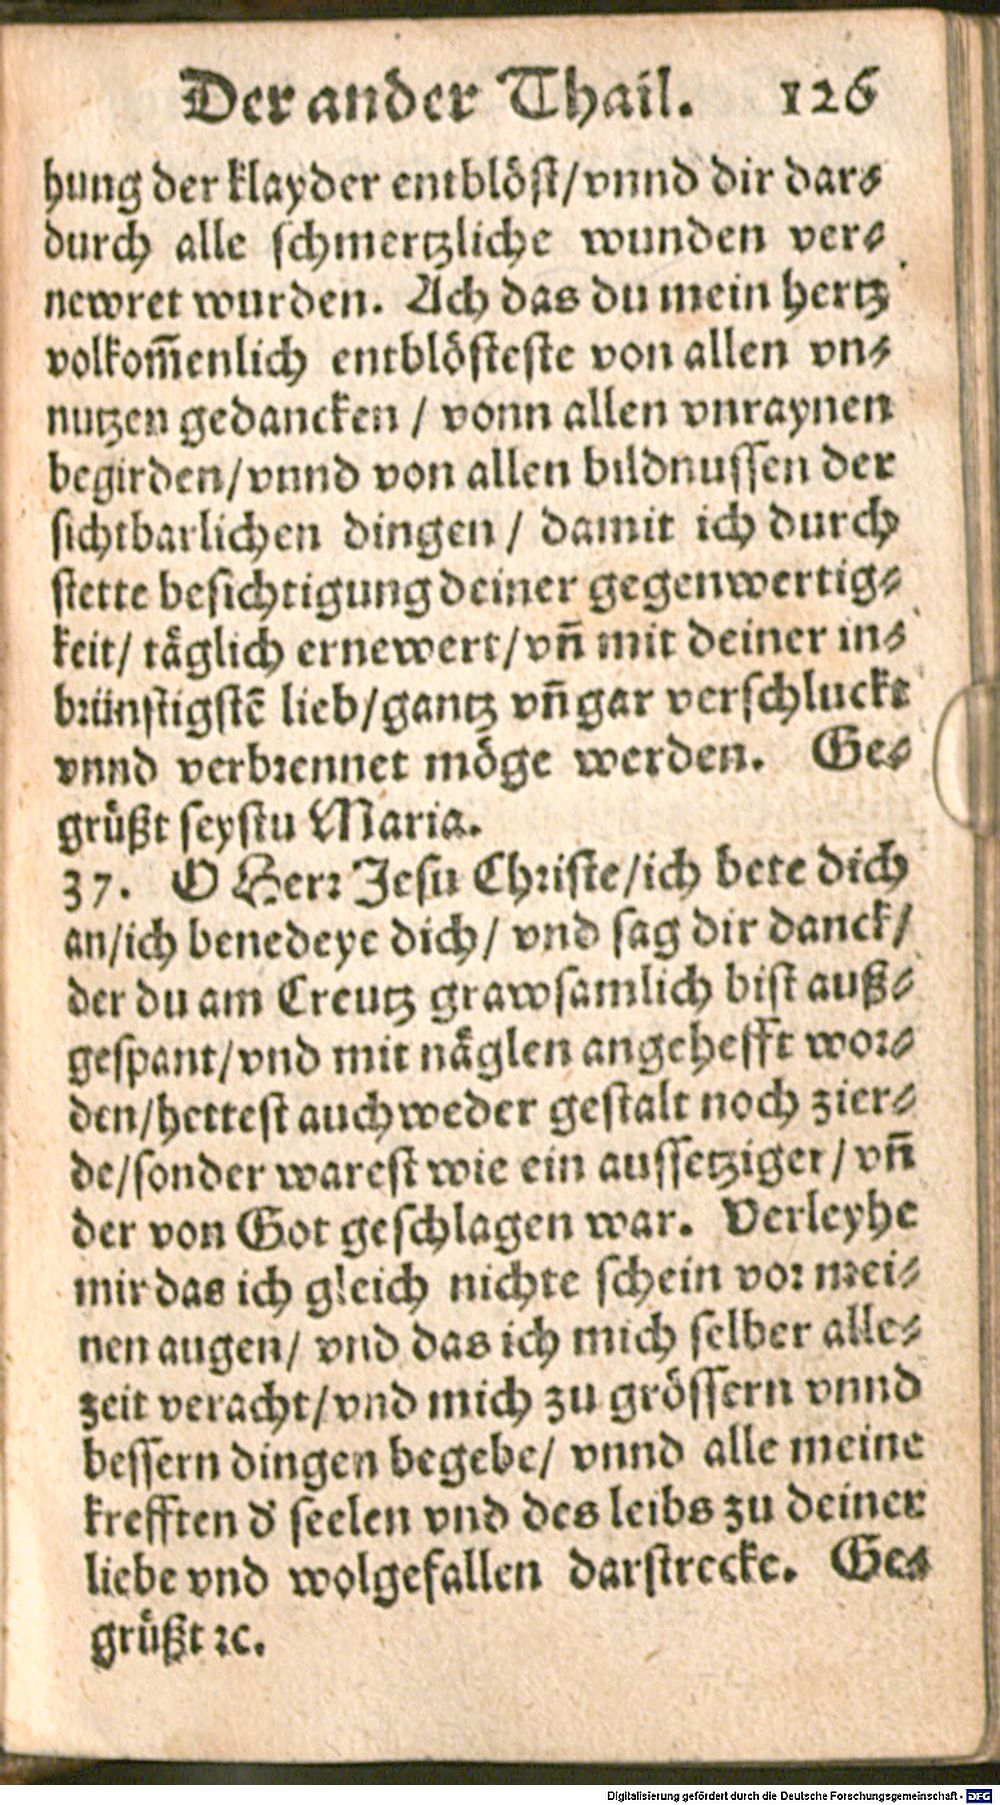 Der ander Thail. 126
hung der klayder entblöst/vnnd dir dar⸗
durch alle schmertzliche wunden ver⸗
newret wurden. Ach das du mein hertz
volkom̃enlich entblösteste von allen vn⸗
nutzen gedancken / vonn allen vnraynen
begirden/vnnd von allen bildnussen der
sichtbarlichen dingen / damit ich durch
stette besichtigung deiner gegenwertig⸗
keit/ täglich ernewert/vn̄ mit deiner in⸗
brünstigstē lieb/gantz vn̄ gar verschluckt
vnnd verbrennet möge werden. Ge⸗
grüßt seystu Maria.
37. O Herr Jesu Christe/ich bete dich
an/ich benedeye dich/ vnd sag dir danck/
der du am Creutz grawsamlich bist auß⸗
gespant/vnd mit näglen angehefft wor⸗
den/hettest auch weder gestalt noch zier⸗
de/sonder warest wie ein aussetziger/ vn̄
der von Got geschlagen war. Verleyhe
mir das ich gleich nichte schein vor mei⸗
nen augen/ vnd das ich mich selber alle⸗
zeit veracht/vnd mich zu grössern vnnd
bessern dingen begebe/ vnnd alle meine
krefften d' seelen vnd des leibs zu deiner
liebe vnd wolgefallen darstrecke. Ge⸗
grüßt ꝛc.
Digitalisierung gefördert durch die Deutsche Forschungsgemeinschaft - DFG